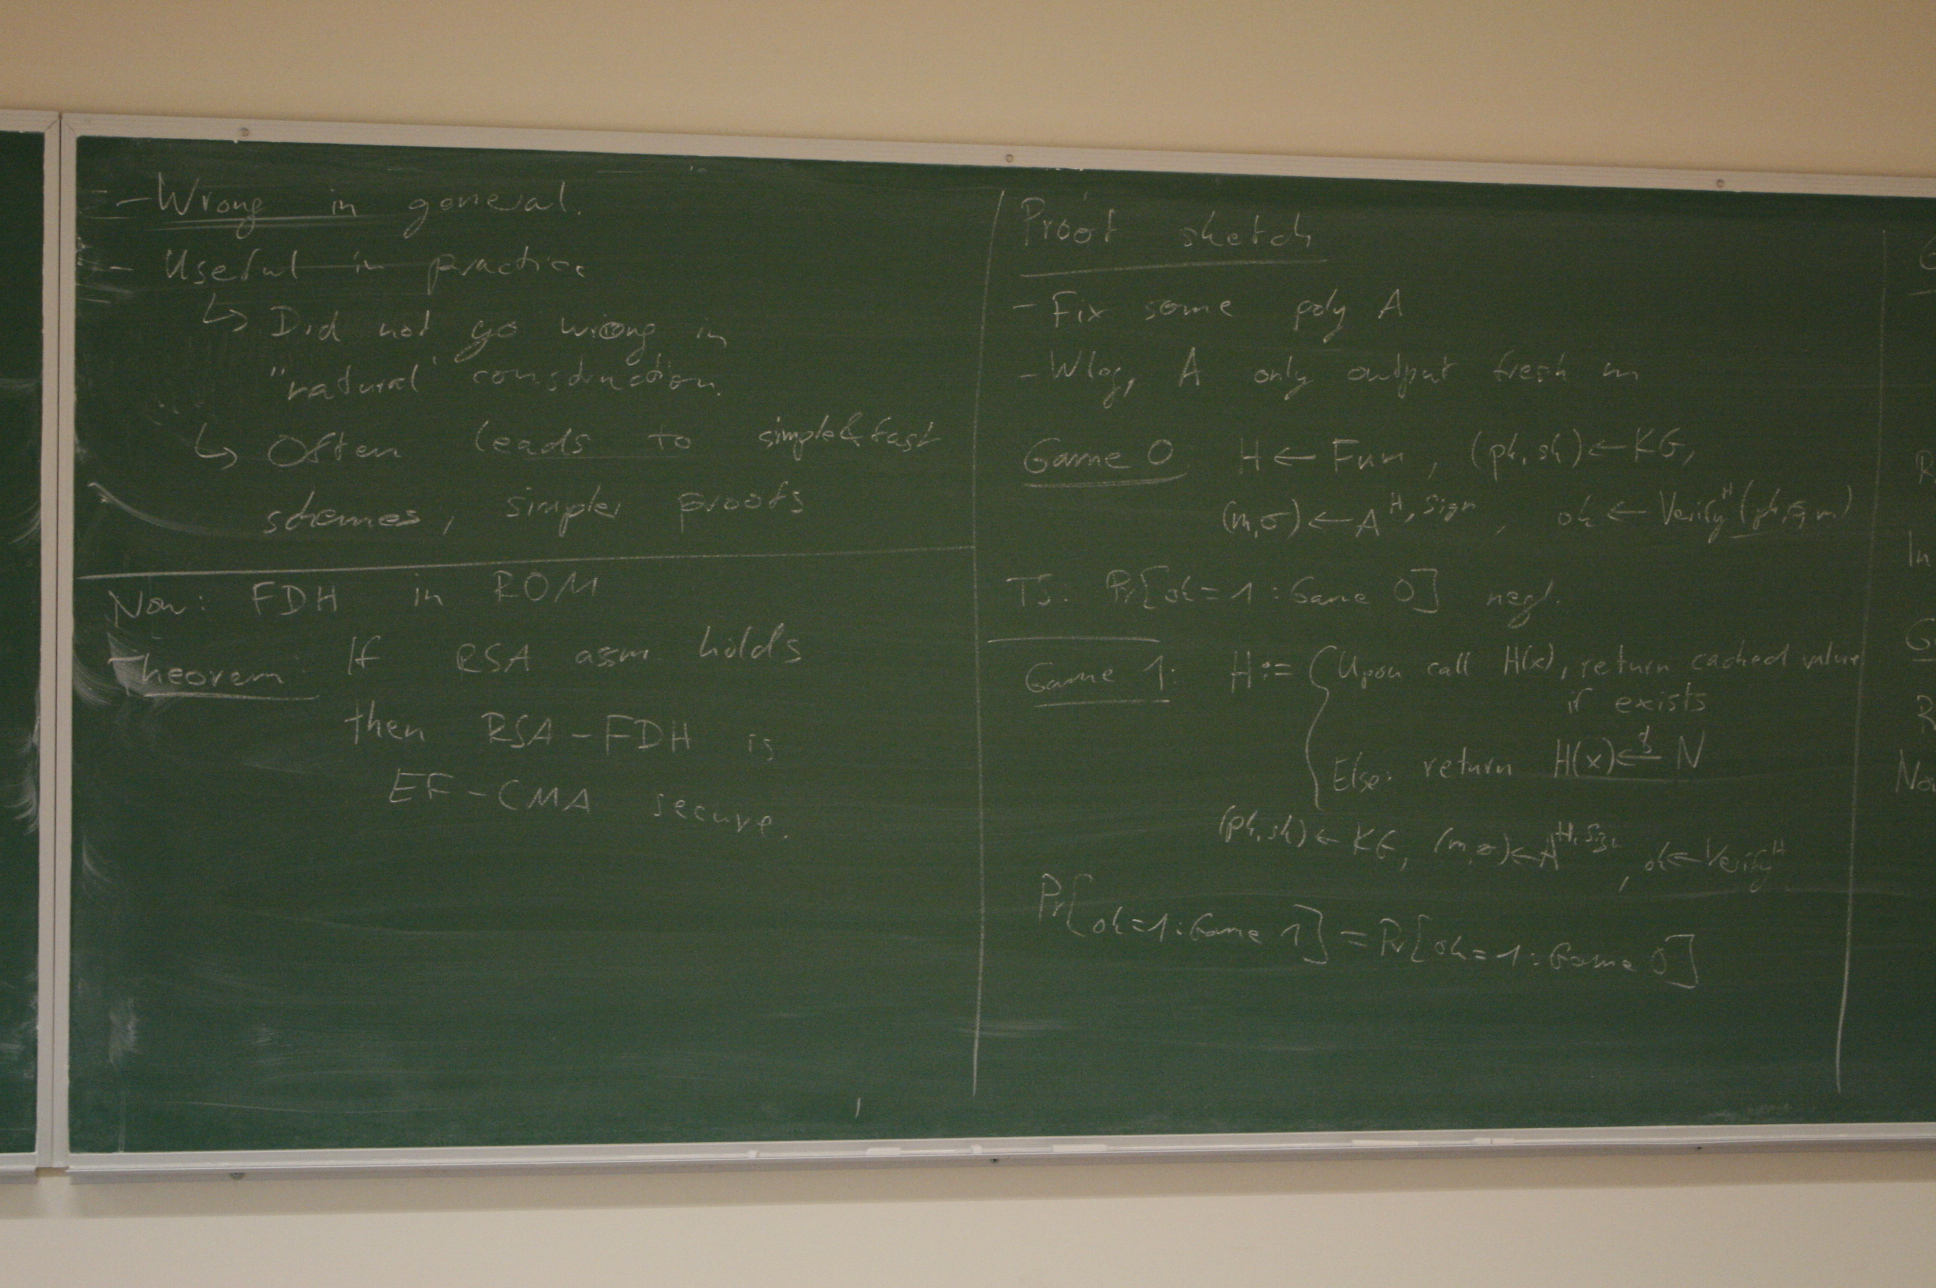 - Wrong in general.
- Useful in practice
↳ Did not go wrong in
"natural" construction.
↳ Often leads to simple & fast
schemes, simpler proofs
Now: FDH in ROM
Theorem If RSA assm. holds
then RSA-FDH is
EF-CMA secure.
Proof sketch
- Fix some poly A
- Wlog, A only output fresh m
Game 0 H ← Fun, (pk, sk) ← KG,
(m,σ) ← A^{H, Sign}, ok ← Verify^H (pk,σ,m)
TS: Pr[ok=1 : Game 0] negl.
Game 1: H := { Upon call H(x), return cached value
if exists
Else: return H(x) ←$ N
(pk, sk) ← KG, (m,σ) ← A^{H, Sign}, ok ← Verify^H
Pr[ok=1 : Game 1] = Pr[ok=1 : Game 0]
In